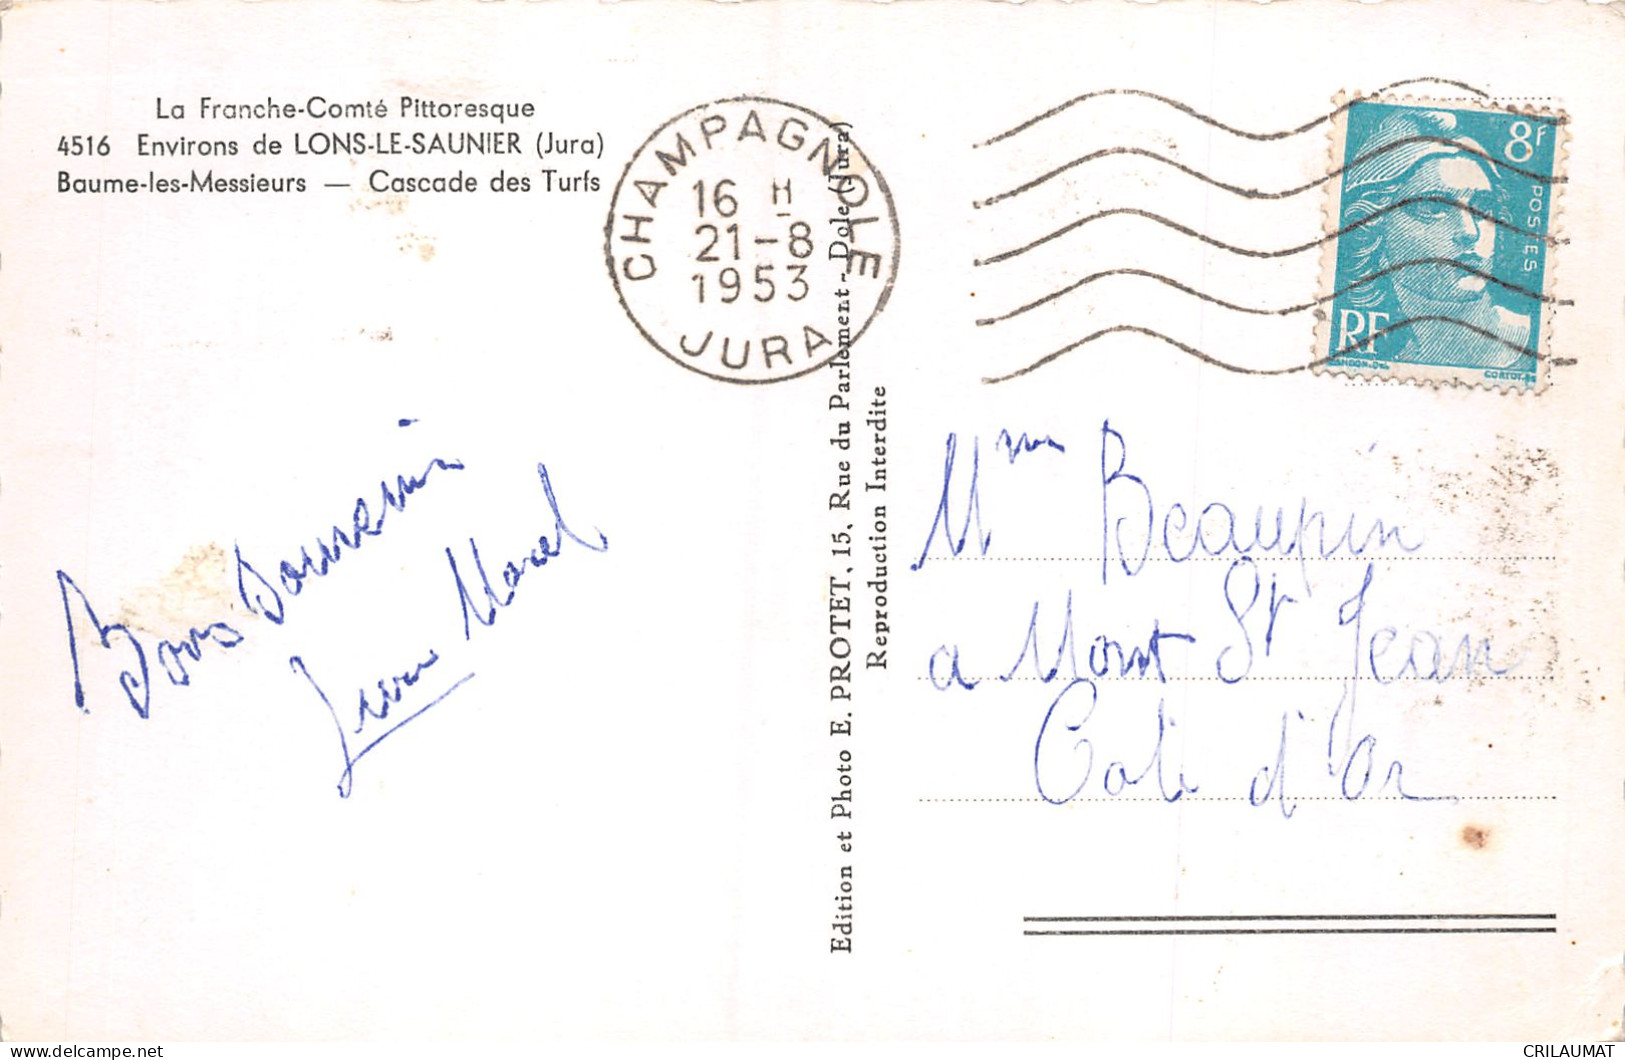 La Franche-Comté Pittoresque
4516 Environs de LONS-LE-SAUNIER (Jura)
Baume-les-Messieurs — Cascade des Turfs
CHAMPAGNOLE
16 H
21-8
1953
JURA
8F
POSTES
RF
GANDON-DEL
CORTOT-SC
Bons Souvenirs
Marcel
Edition et Photo E. PROTET, 15, Rue du Parlement - Dole (Jura)
Reproduction Interdite
Mme Beaupin
a Mont St Jean
Cote d'Or
CRILAUMAT